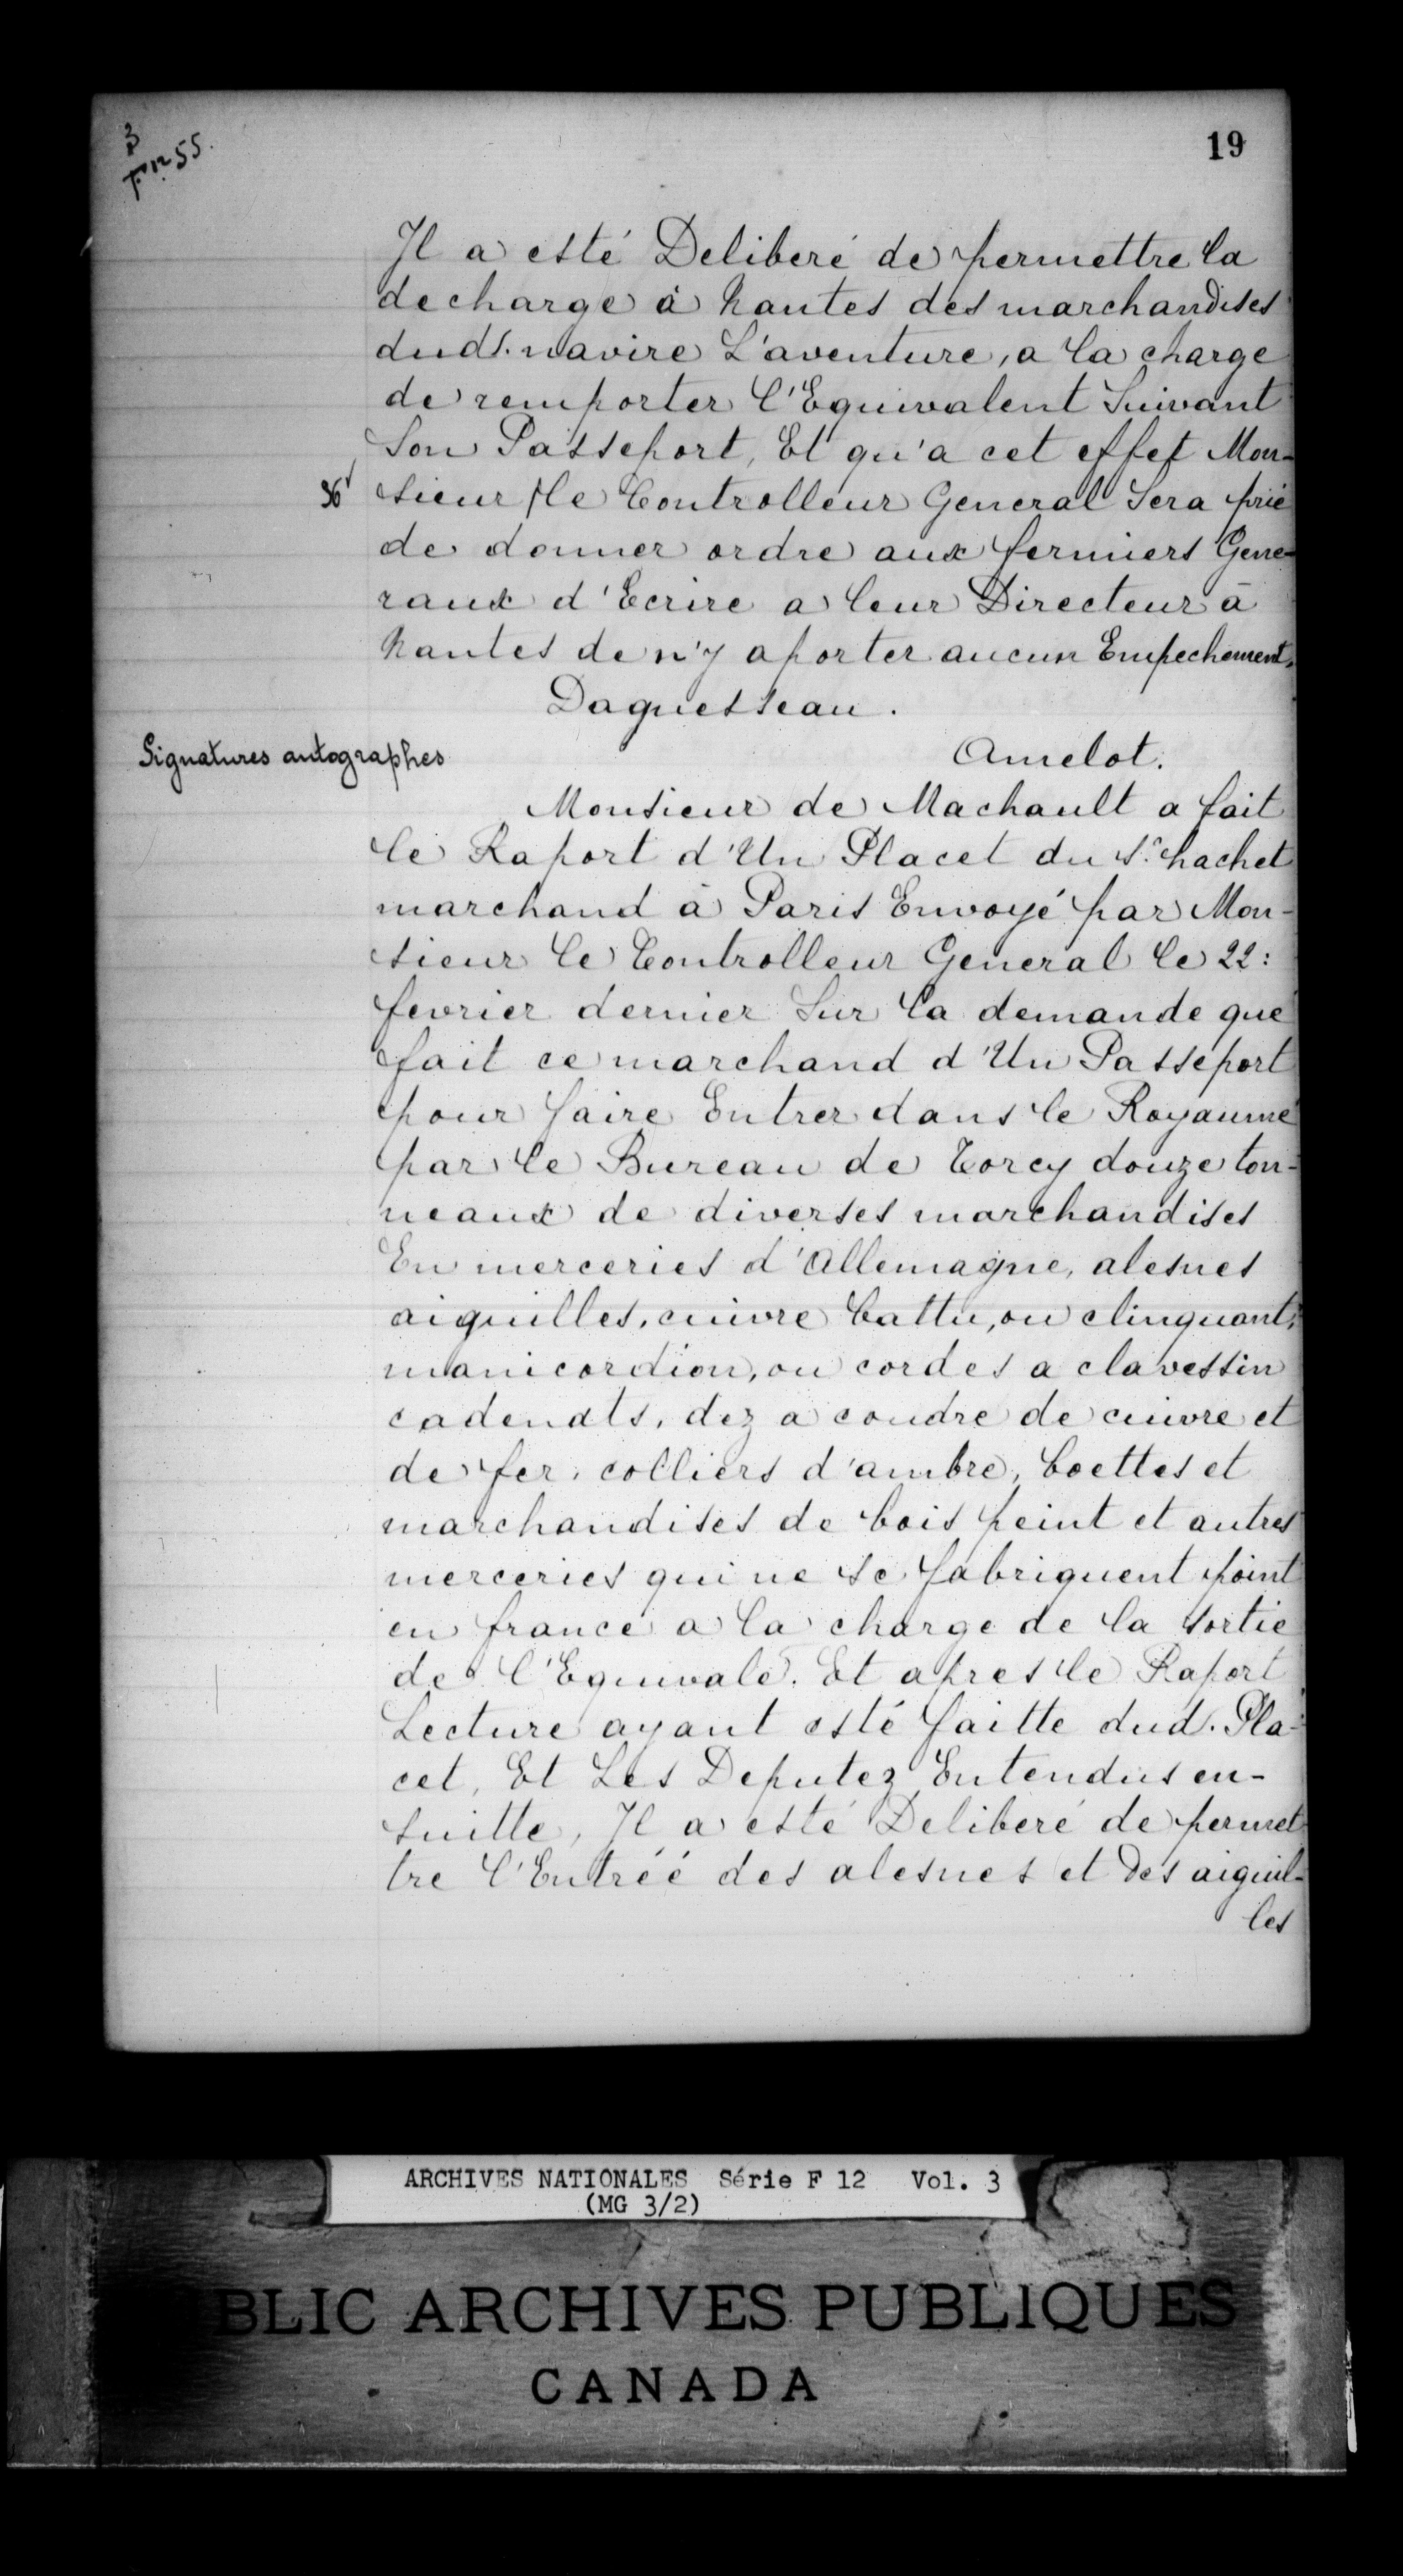 3
F. 12 55.
19
Il a esté Deliberé de permettre la
decharge à Nantes des marchandises
dud. navire L'aventure, a la charge
de remporter l'Equivalent Suivant
Son Passeport, Et qu'a cet effet Mon-
36 sieur le Controlleur General Sera prié
de donner ordre aux fermiers Gene-
raux d'Ecrire a leur Directeur à
Nantes de n'y aporter aucun Empechement.
Daguesseau.
Signatures autographes
Amelot.
Monsieur de Machault a fait
le Raport d'Un Placet du Sr. hachet
marchand à Paris Envoyé par Mon-
sieur le Controlleur General le 22:
fevrier dernier Sur la demande que
fait ce marchand d'Un Passeport
pour faire Entrer dans le Royaume
par le Bureau de Torcy douze ton-
neaux de diverses marchandises
En merceries d'Allemagne, alesnes
aiguilles, cuivre battu, ou clinquant,
manicordion, ou cordes a clavessin
cadenats, dez a coudre de cuivre et
de fer, colliers d'ambre, boettes et
marchandises de bois peint et autres
merceries qui ne se fabriquent point
en france a la charge de la sortie
de l'Equivalt. Et apres le Raport
Lecture ayant esté faitte dud. Pla-
cet, Et Les Deputez Entendus en-
suitte, Il a esté Deliberé de permet
tre l'Entréé des alesnes et Des aiguil-
les
ARCHIVES NATIONALES Série F 12 Vol. 3
(MG 3/2)
BLIC ARCHIVES PUBLIQUES
CANADA